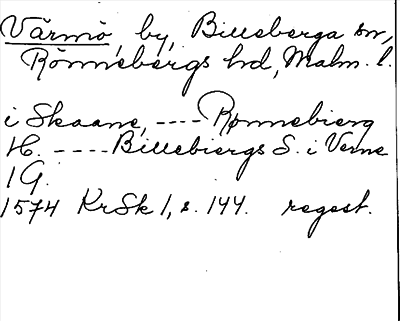 Värmö, by, Billeberga sn,
Rönnebergs hd, Malm. l.
i Skaane, ---- Rønnebierg
H. ---- Billebiergs S. i Verne
1 G.
1574 KrSk 1, s. 144. regest.